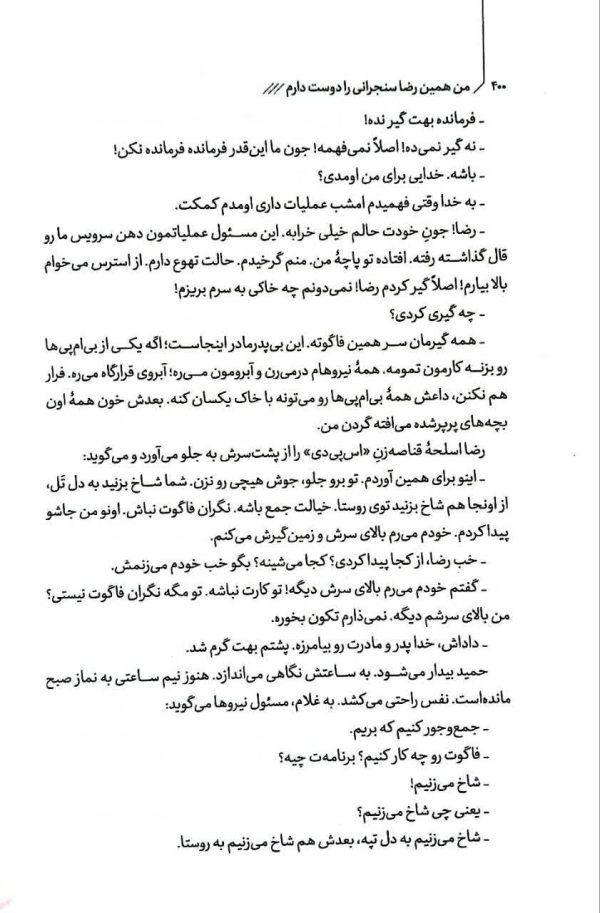 ۴۰۰ / من همین رضا سنجرانی را دوست دارم ////
- فرمانده بهت گیر نده!
- نه گیر نمی‌ده! اصلاً نمی‌فهمه! جون ما این‌قدر فرمانده فرمانده نکن!
- باشه. خدایی برای من اومدی؟
- به خدا وقتی فهمیدم امشب عملیات داری اومدم کمکت.
- رضا! جونِ خودت حالم خیلی خرابه. این مسئول عملیاتمون دهن سرویس ما رو
قال گذاشته رفته. افتاده تو پاچهٔ من. منم گرخیدم. حالت تهوع دارم. از استرس می‌خوام
بالا بیارم! اصلاً گیر کردم رضا! نمی‌دونم چه خاکی به سرم بریزم!
- چه گیری کردی؟
- همه گیرمان سر همین فاگوته. این بی‌پدرمادر اینجاست؛ اگه یکی از بی‌ام‌پی‌ها
رو بزنه کارمون تمومه. همهٔ نیروهام درمی‌رن و آبرومون می‌ره؛ آبروی قرارگاه می‌ره. فرار
هم نکنن، داعش همهٔ بی‌ام‌پی‌ها رو می‌تونه با خاک یکسان کنه. بعدش خون همهٔ اون
بچه‌های پرپرشده می‌افته گردن من.
رضا اسلحهٔ قناصه‌زنِ «اس‌پی‌دی» را از پشت‌سرش به جلو می‌آورد و می‌گوید:
- اینو برای همین آوردم. تو برو جلو، جوش هیچی رو نزن. شما شاخ بزنید به دل تَل،
از اونجا هم شاخ بزنید توی روستا. خیالت جمع باشه. نگران فاگوت نباش. اونو من جاشو
پیدا کردم. خودم می‌رم بالای سرش و زمین‌گیرش می‌کنم.
- خب رضا، از کجا پیدا کردی؟ کجا می‌شینه؟ بگو خب خودم می‌زنمش.
- گفتم خودم می‌رم بالای سرش دیگه! تو کارت نباشه. تو مگه نگران فاگوت نیستی؟
من بالای سرشم دیگه. نمی‌ذارم تکون بخوره.
- داداش، خدا پدر و مادرت رو بیامرزه. پشتم بهت گرم شد.
حمید بیدار می‌شود. به ساعتش نگاهی می‌اندازد. هنوز نیم ساعتی به نماز صبح
مانده‌است. نفس راحتی می‌کشد. به غلام، مسئول نیروها می‌گوید:
- جمع‌وجور کنیم که بریم.
- فاگوت رو چه کار کنیم؟ برنامه‌ت چیه؟
- شاخ می‌زنیم!
- یعنی چی شاخ می‌زنیم؟
- شاخ می‌زنیم به دل تپه، بعدش هم شاخ می‌زنیم به روستا.